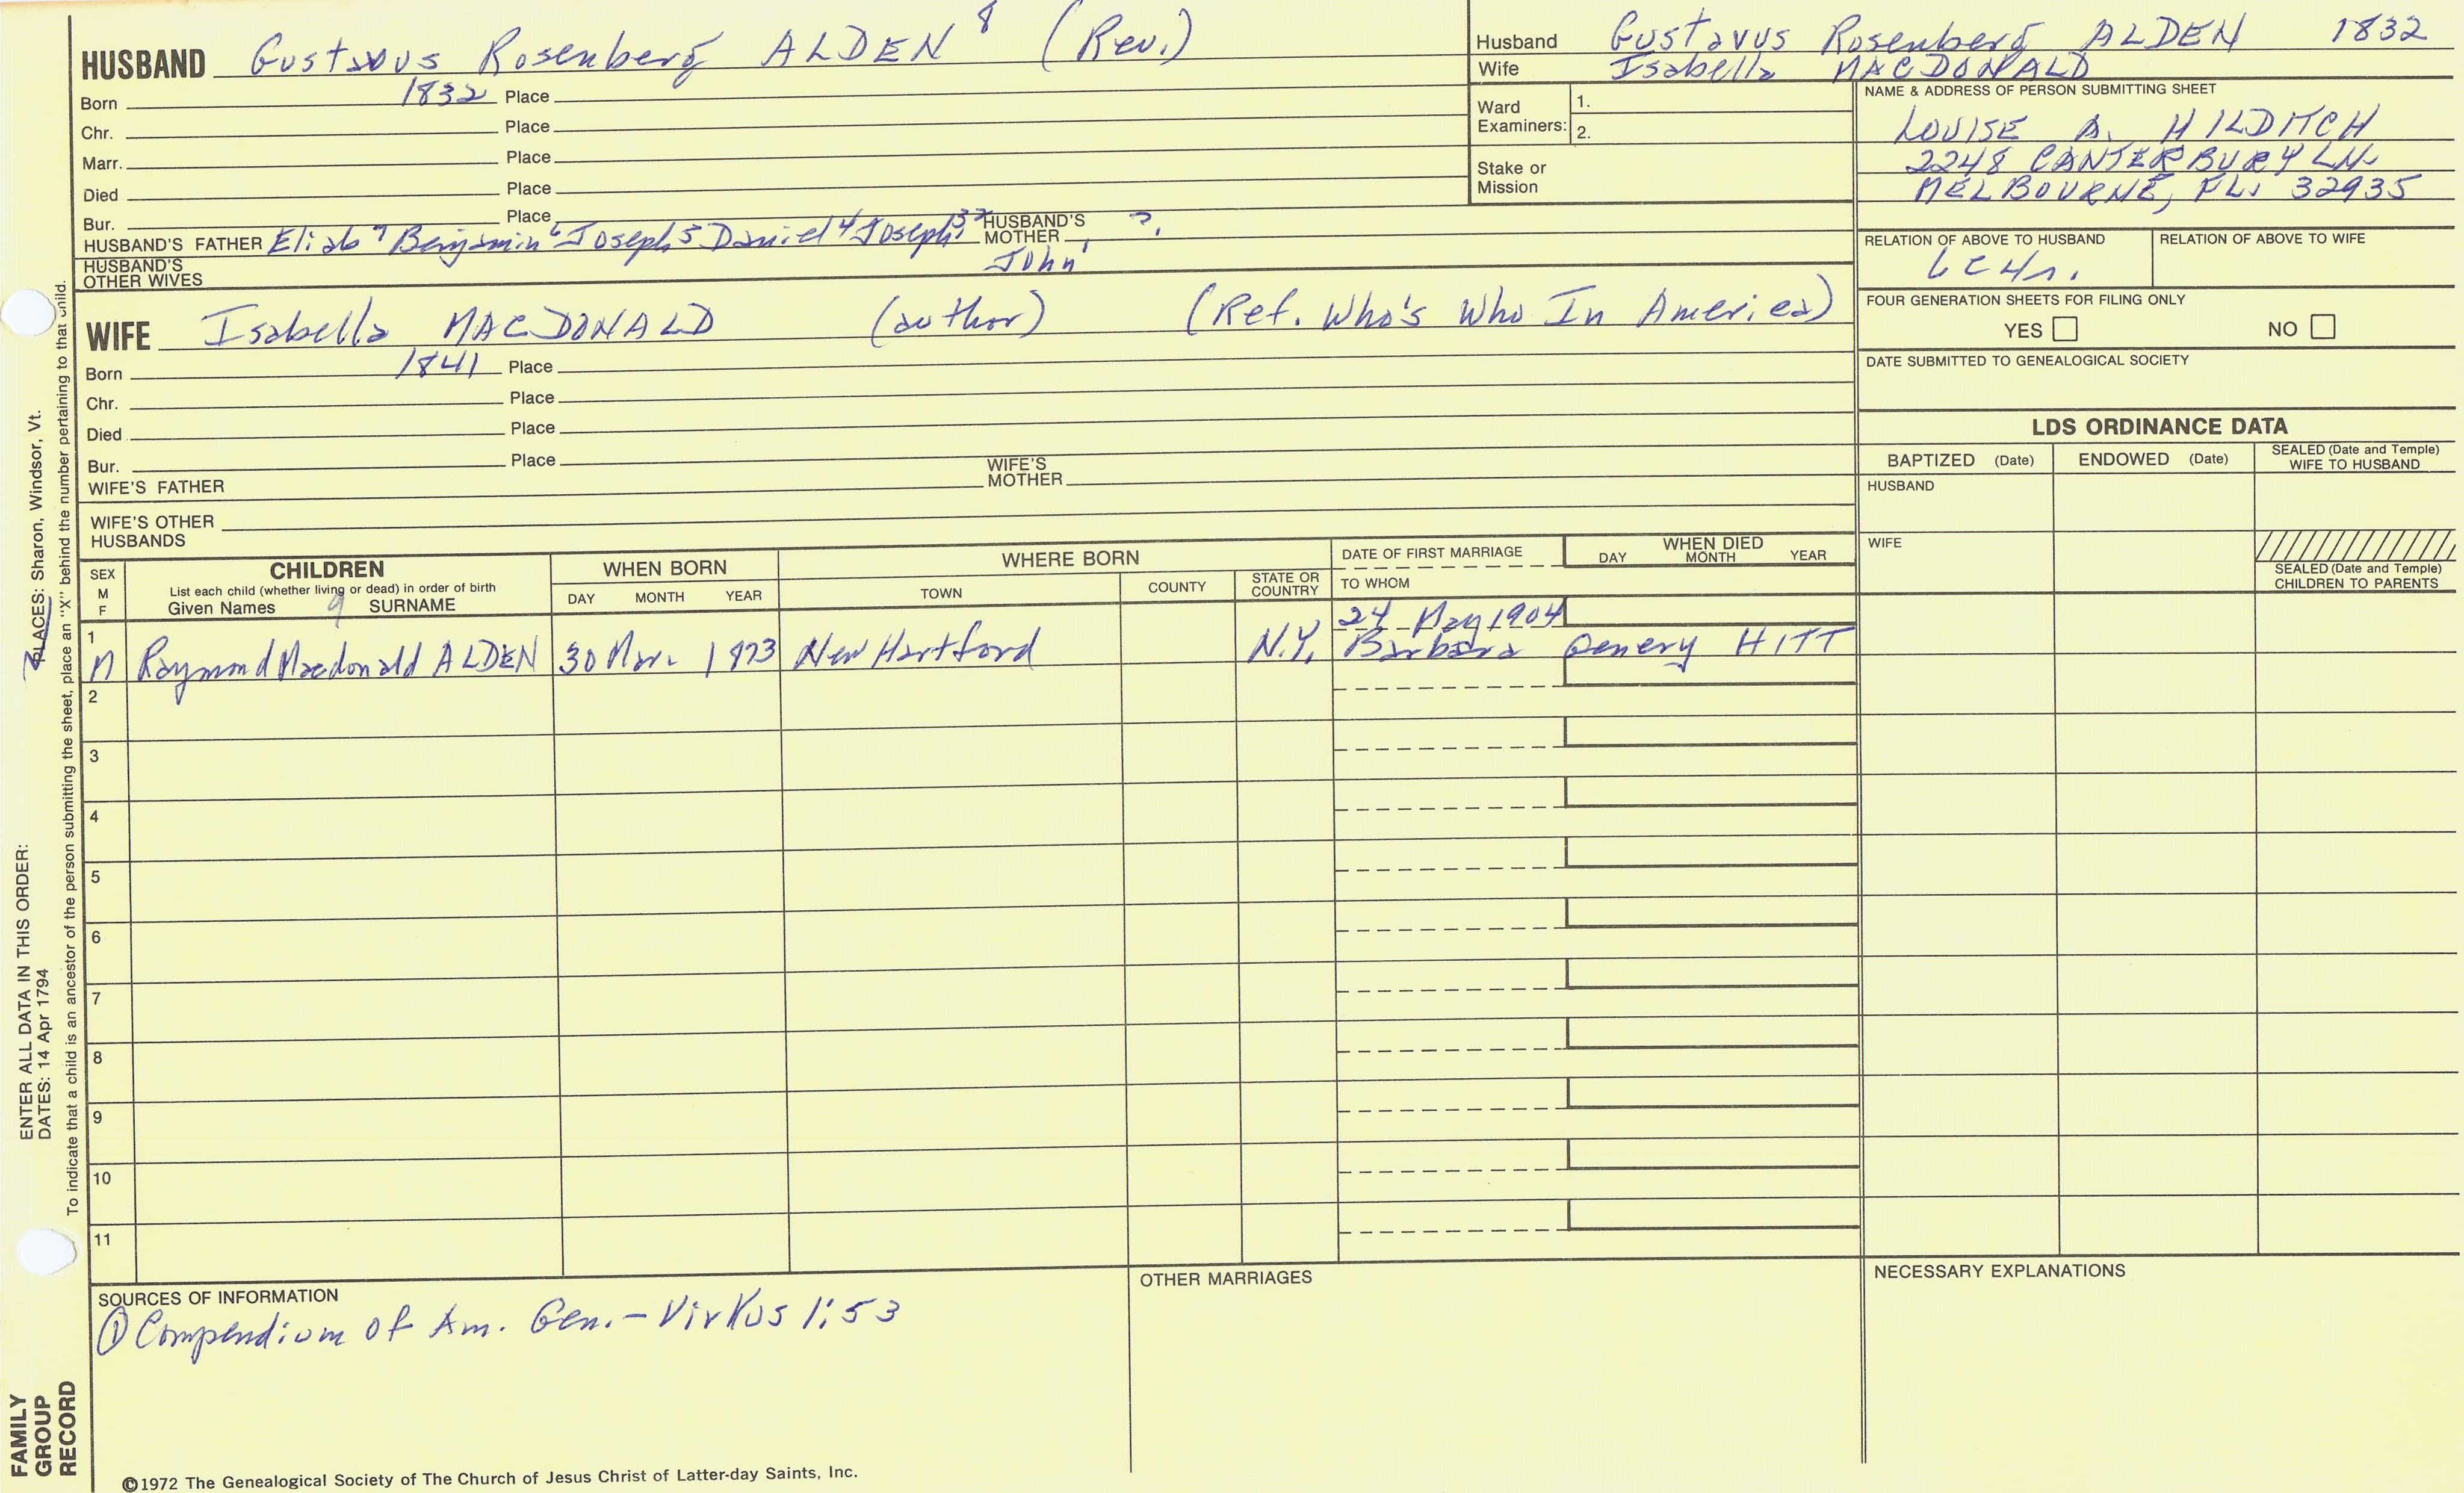 HUSBAND Gustavus Rosenberg ALDEN 8 (Rev.)
Born 1832 Place
Chr. Place
Marr. Place
Died Place
Bur. Place
HUSBAND'S FATHER Eliab 7 Benjamin 6 Joseph 5 Daniel 4 Joseph 32 HUSBAND'S MOTHER ?
John 1
HUSBAND'S OTHER WIVES
Husband Gustavus Rosenberg ALDEN 1832
Wife Isabella MACDONALD
Ward Examiners: 1.
2.
Stake or Mission
NAME & ADDRESS OF PERSON SUBMITTING SHEET
LOUISE A. HILDITCH
2248 CANTERBURY LN.
MELBOURNE, FL. 32935
RELATION OF ABOVE TO HUSBAND
RELATION OF ABOVE TO WIFE
FOUR GENERATION SHEETS FOR FILING ONLY
YES NO
DATE SUBMITTED TO GENEALOGICAL SOCIETY
WIFE Isabella MACDONALD (author) (Ref. Who's Who In America)
Born 1841 Place
Chr. Place
Died Place
Bur. Place
WIFE'S FATHER WIFE'S MOTHER
WIFE'S OTHER HUSBANDS
LDS ORDINANCE DATA
BAPTIZED (Date) ENDOWED (Date) SEALED (Date and Temple) WIFE TO HUSBAND
HUSBAND
WIFE
SEALED (Date and Temple) CHILDREN TO PARENTS
SEX M F
CHILDREN
List each child (whether living or dead) in order of birth
Given Names 9 SURNAME
WHEN BORN
DAY MONTH YEAR
WHERE BORN
TOWN COUNTY STATE OR COUNTRY
DATE OF FIRST MARRIAGE
TO WHOM
WHEN DIED
DAY MONTH YEAR
24 May 1904
1 M Raymond Macdonald ALDEN 30 Mar. 1873 New Hartford N.Y. Barbara HITT
2
3
4
5
6
7
8
9
10
11
SOURCES OF INFORMATION
① Compendium of Am. Gen. - Virkus 1:53
OTHER MARRIAGES
NECESSARY EXPLANATIONS
©1972 The Genealogical Society of The Church of Jesus Christ of Latter-day Saints, Inc.
FAMILY GROUP RECORD
ENTER ALL DATA IN THIS ORDER:
DATES: 14 Apr 1794
PLACES: Sharon, Windsor, Vt.
To indicate that a child is an ancestor of the person submitting the sheet, place an "X" behind the number pertaining to that child.